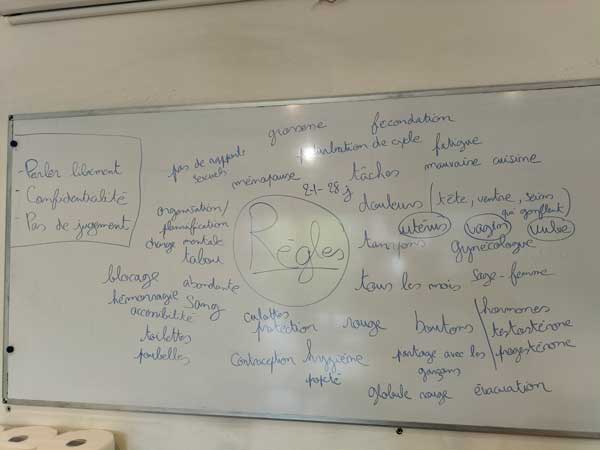 - Parler librement
- Confidentialité
- Pas de jugment
grossesse
fécondation
perturbation de cycle
fatigue
pas de rapports
sexuels
ménopause
21-28 j
tâches
mauvaise cuisine
organisation/
planification
charge mentale
tabou
Règles
douleurs (tête, ventre, seins
qui gonflent)
utérus
vagin
vulve
tampons
gynécologue
blocage
abondante
tous les mois
sage-femme
hémorragie
sang
accessibilité
toilettes
poubelles
culottes
protection
rouge
boutons
hormones
testostérone
progestérone
contraception
hygiène
partage avec les
garçons
globule rouge
évacuation